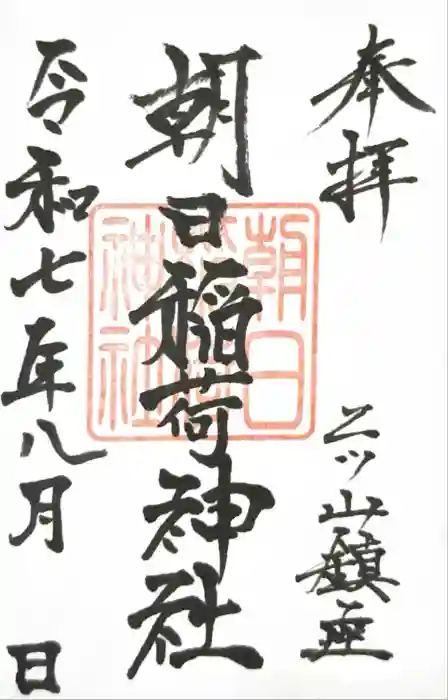 奉拝
二ツ山鎮座
朝日稲荷神社
朝日
稲荷
神社
令和七年八月 日